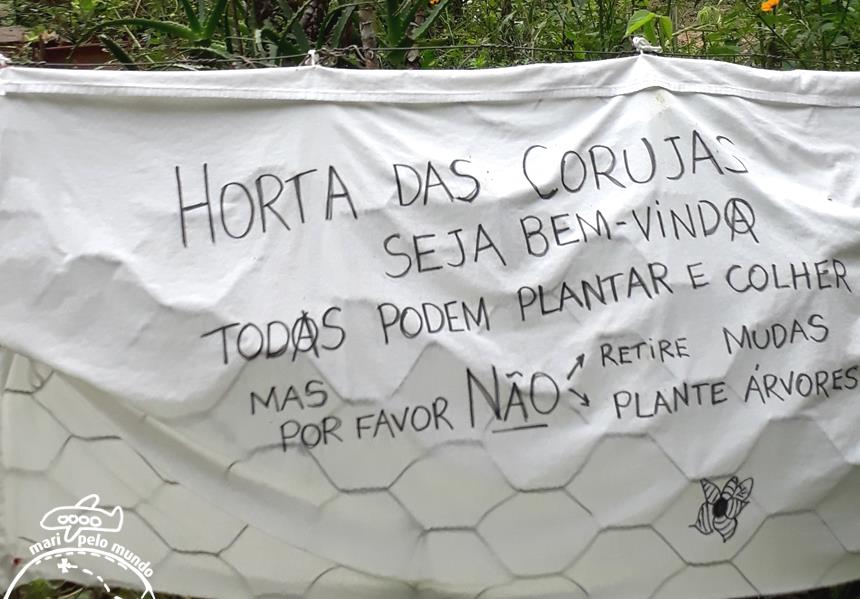 HORTA DAS CORUJAS
SEJA BEM-VINDA
TODAS PODEM PLANTAR E COLHER
MAS POR FAVOR NÃO
RETIRE MUDAS
PLANTE ÁRVORES
mari pelo mundo